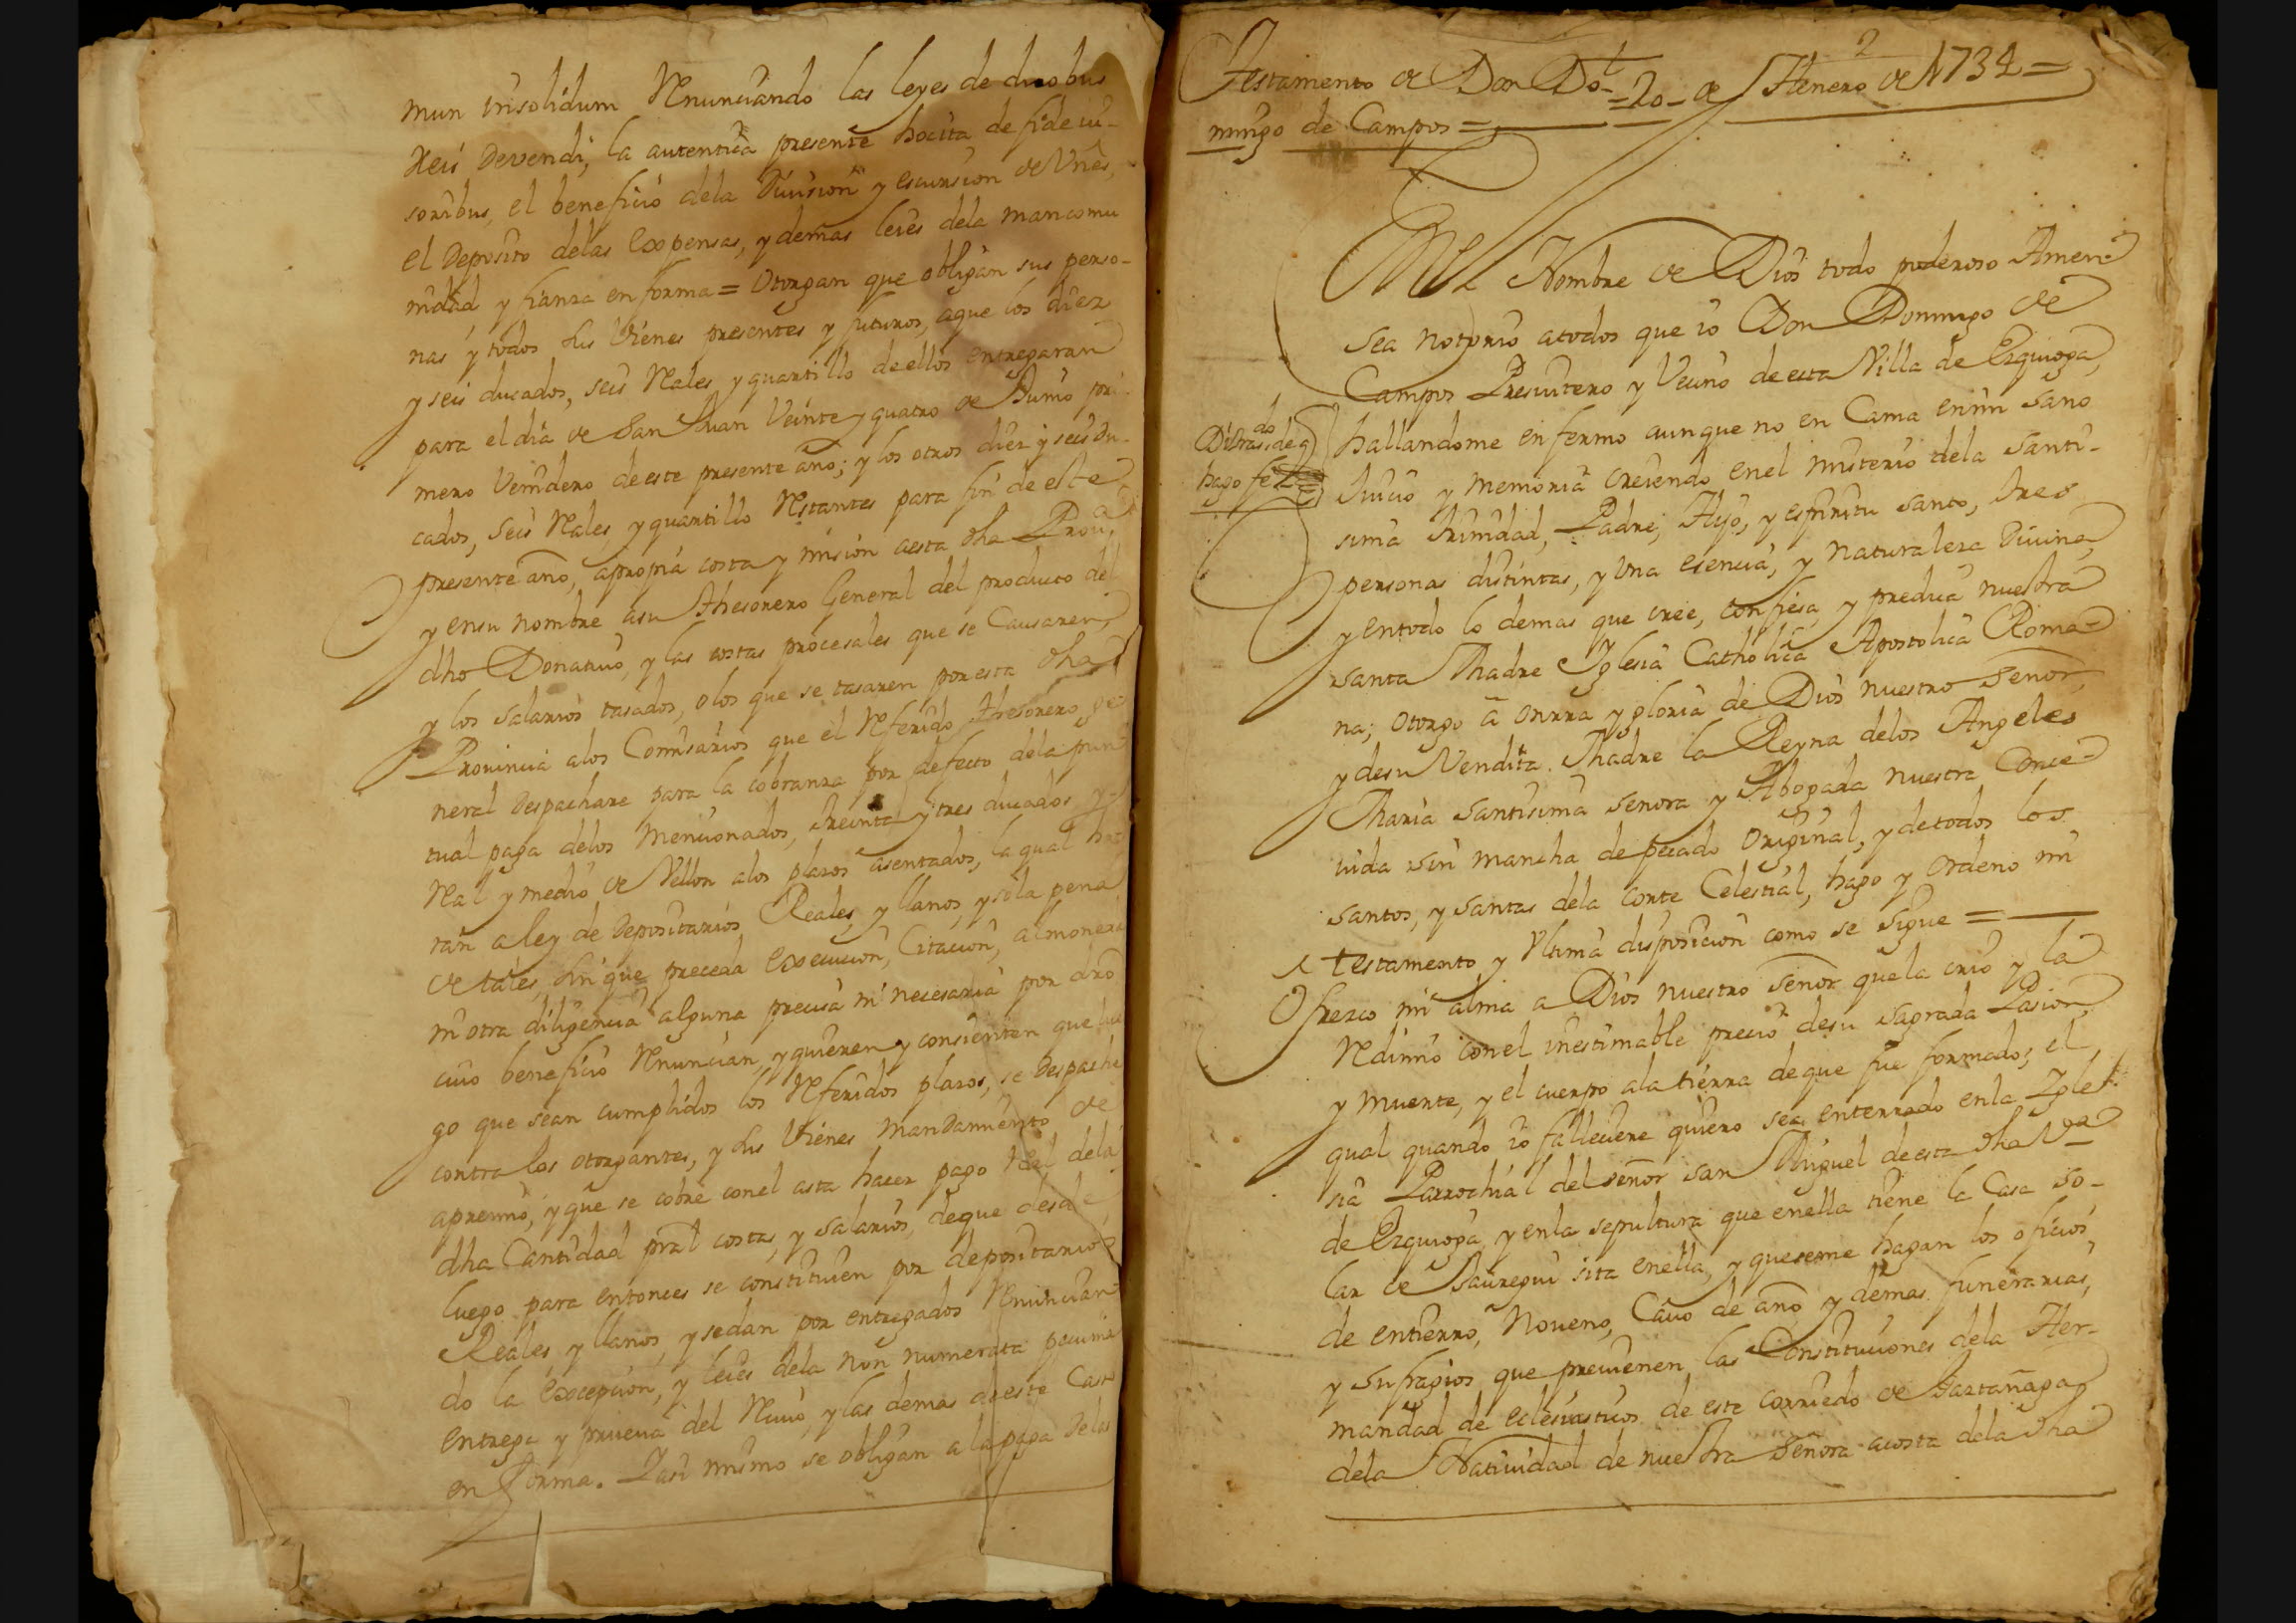 mun insolidum Renunciando las leyes de duobus
Reis Devendi, la autentica presente hocita de fideiu-
soribus, el beneficio dela Diuision y escursion de Vnēs,
el Deposito delas Expensas, y demas leies dela mancomu
nidad y fianza en forma = Otorgan que obligan sus perso-
nas y todos sus Vienes presentes y futuros, aque los diez
y seis ducados, seis Rales y quartillo de ellos entregaran
para el dia de San Juan Veinte y quatro de Junio pri-
mero Venidero de este presente año; y los otros diez y seis du-
cados, seis Rales y quartillo Restantes para fin de este
presente año, apropia costa y mision aesta dha Prouª
y ensu nombre asu Thesorero General del producto del
dho Donatiuo, y las costas procesales que se Causaren,
y los salarios tasados, olos que se tasaren por esta dha
Prouincia alos Comisarios que el Referido Thesorero ge-
neral Despachare para la cobranza por defecto dela pun-
tual paga delos Mencionados, treinta y tres ducados y
Ral y medio de Vellon alos plazos asentados, la qual ha-
ran a ley de Depositarios Reales, y llanos, y sola pena
de tales, sin que preceda Execucion, Citacion, almoneda
ni otra diligencia alguna precisa ni necesaria por dro
cuio beneficio Renuncian, y quieren y consienten que lue
go que sean cumplidos los Referidos plazos, se Despache
contra los otorgantes, y sus Vienes mandamiento de
apremio, y que se cobre conel asta hacer pago Real dela
dha Cantidad pral costas, y salarios, deque desde
luego para entonces se constituien por depositarios
Reales, y llanos, y sedan por entregados Renuncian
do la excepcion, y leies dela non numerata pecunia
entrega y prueua del Reciuo, y las demas de este Caso
en forma. Y asi mismo se obligan a la paga delas
2
Testamento de Don Do- = 20 - de Henero de 1734 =
mingo de Campos =
En el Nombre de Dios todo poderoso Amen
sea notorio atodos que io Don Domingo de
Campos Presuitero y Vecino de esta Villa de Ezquioga,
hallandome enfermo aunque no en Cama en mi sano
hago fe
Juicio y memoria creiendo enel misterio dela santi-
sima trinidad, Padre, Hijo, y espiritu santo, tres
personas distintas, y una esencia, y naturaleza Diuina,
y entodo lo demas que cree, confiesa y predica nuestra
santa Madre Yglesia Catholica Apostolica Roma-
na; otorgo a onrra y gloria de Dios nuestro señor,
y desu Vendita Madre la Reyna delos Angeles
Maria santisima señora y Abogada nuestra Conce-
uida sin mancha de pecado original, y detodos los
santos, y santas dela corte Celestial, hago y ordeno mi
testamento, y Vltima disposicion como se sigue =
Ofrezco mi alma a Dios nuestro señor quela crio y la
Redimio conel inestimable precio desu sagrada Pasion,
y muerte, y el cuerpo ala tierra deque fue formado; el
qual quando io falleciere quiero sea enterrado enla Ygle-
sia Parrochial del señor san Miguel de esta dha Vª
de Ezquioga, y enla sepultura que enella tiene la Casa so-
lar de Jauregui sita enella, y queseme hagan los oficios
de entierro, Noueno, Cauo de año y demas funerarias,
y sufragios que preuienen las Constituciones dela Her-
mandad de eclesiasticos de este corriedo de Sartañaga
dela Natiuidad de nuestra señora acosta dela dha